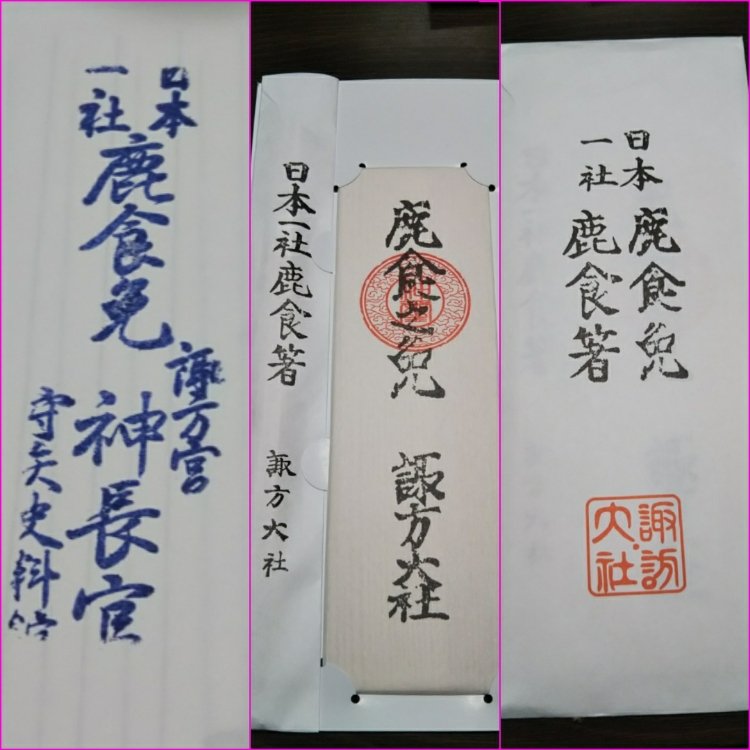 日本
一社
鹿食免
諏方宮
神長官
守矢史料館
鹿食之免 諏方大社
日本一社鹿食箸 諏方大社
日本
一社
鹿食免
鹿食箸
諏訪
大社